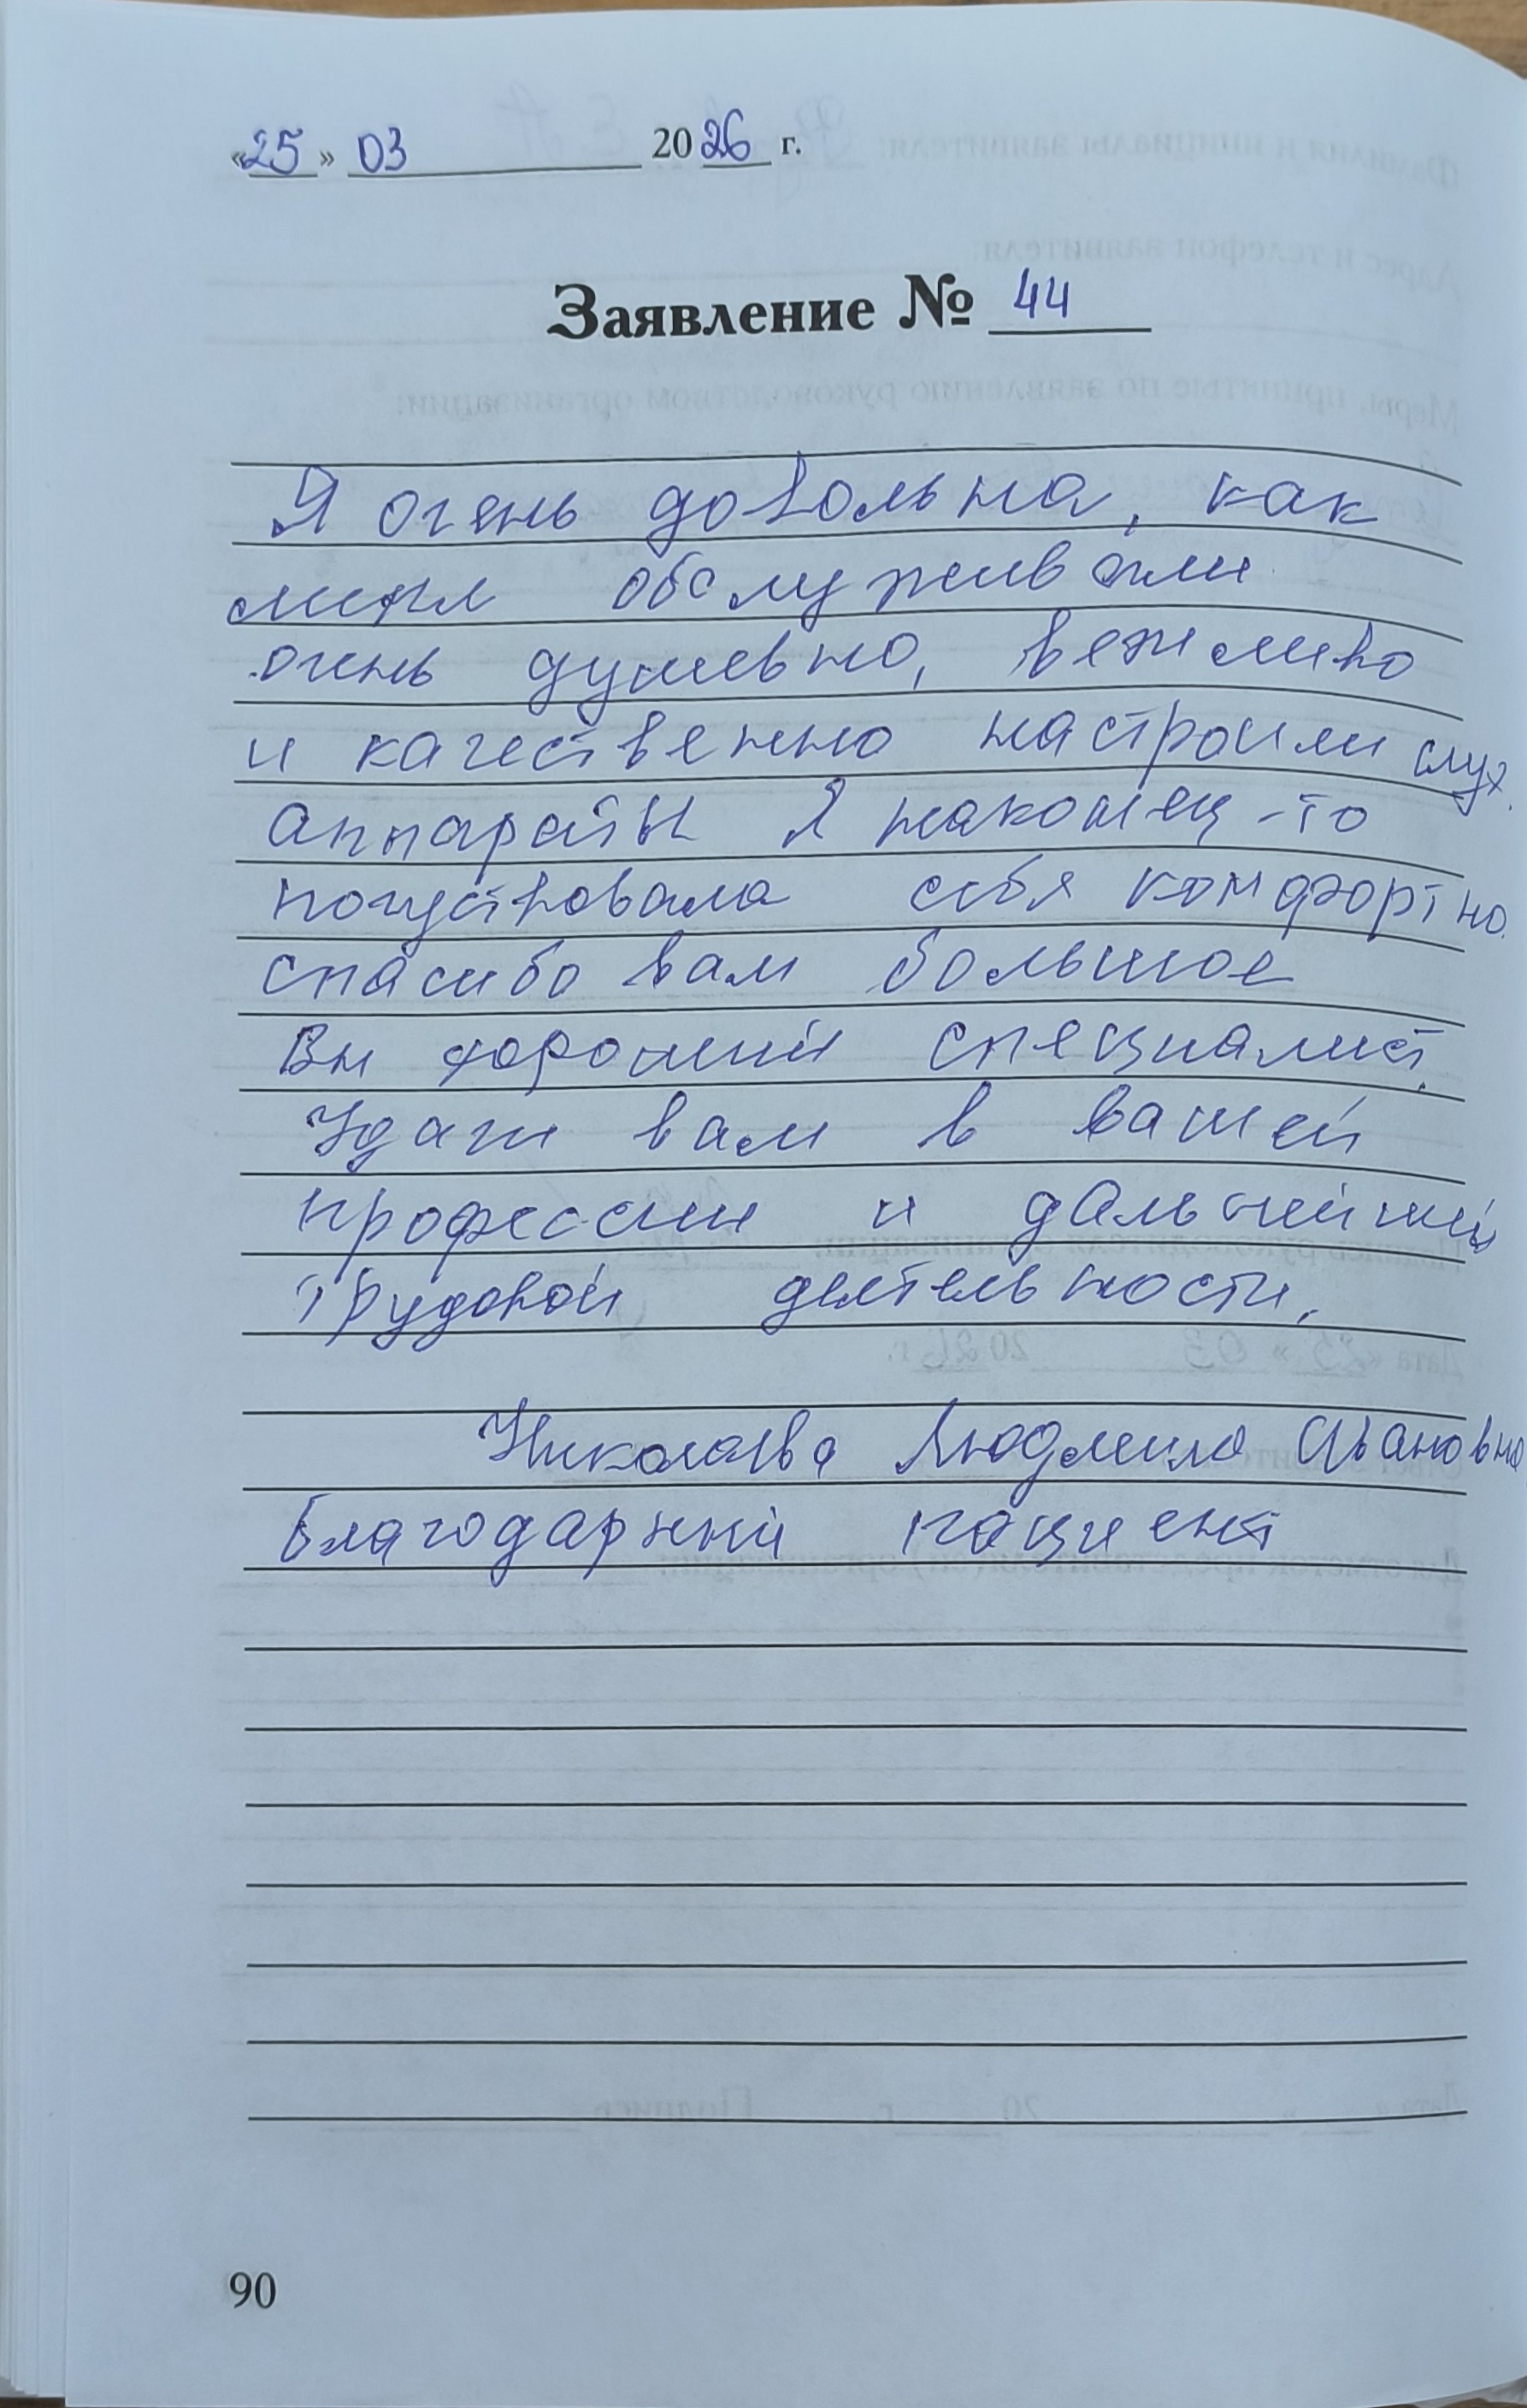 «25» 03 2026 г.
Заявление № 44
Я очень довольна, как
меня обслуживали
очень душевно, вежливо
и качественно настроили слух.
аппараты Я наконец-то
почувствовала себя комфортно.
спасибо вам большое
Вы хороший специалист.
Удачи вам в вашей
профессии и дальнейшей
трудовой деятельности.
Николаева Людмила Ивановна
благодарный пациент
90